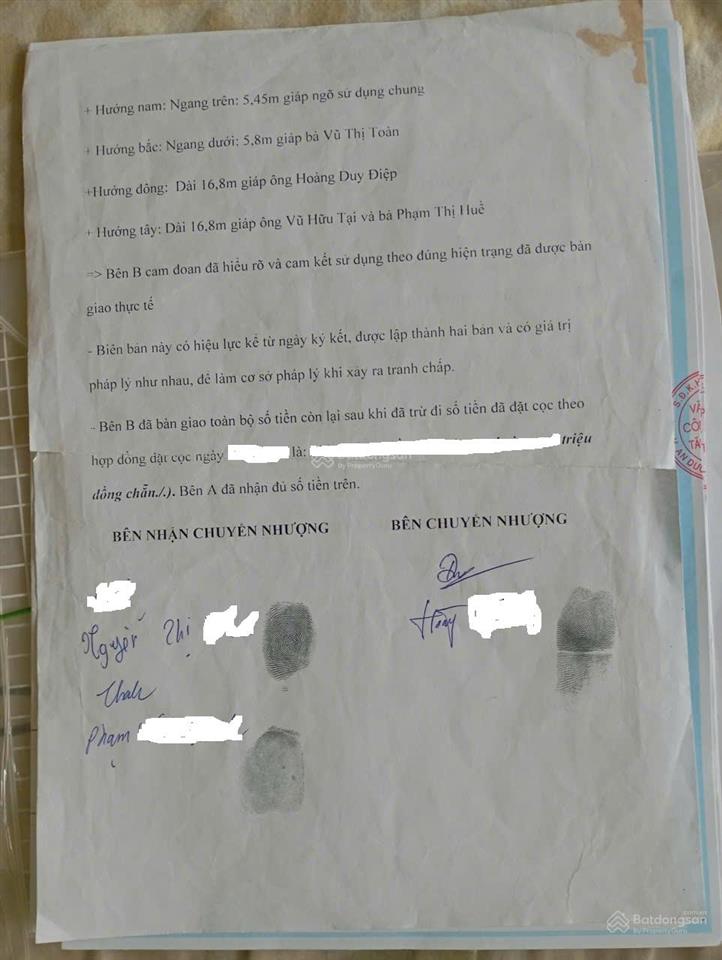 + Hướng nam: Ngang trên: 5,45m giáp ngõ sử dụng chung
+ Hướng bắc: Ngang dưới: 5,8m giáp bà Vũ Thị Toàn
+Hướng đông: Dài 16,8m giáp ông Hoàng Duy Điệp
+ Hướng tây: Dài 16,8m giáp ông Vũ Hữu Tại và bà Phạm Thị Huề
=> Bên B cam đoan đã hiểu rõ và cam kết sử dụng theo đúng hiện trạng đã được bàn
giao thực tế
- Biên bản này có hiệu lực kể từ ngày ký kết, được lập thành hai bản và có giá trị
pháp lý như nhau, để làm cơ sở pháp lý khi xảy ra tranh chấp.
- Bên B đã bàn giao toàn bộ số tiền còn lại sau khi đã trừ đi số tiền đã đặt cọc theo
hợp đồng đặt cọc ngày là: triệu
đồng chẵn./.). Bên A đã nhận đủ số tiền trên.
BÊN NHẬN CHUYỂN NHƯỢNG
BÊN CHUYỂN NHƯỢNG
Nguyễn Thị
Phạm
Batdongsan
by PropertyGuru
Batdongsan
by PropertyGuru